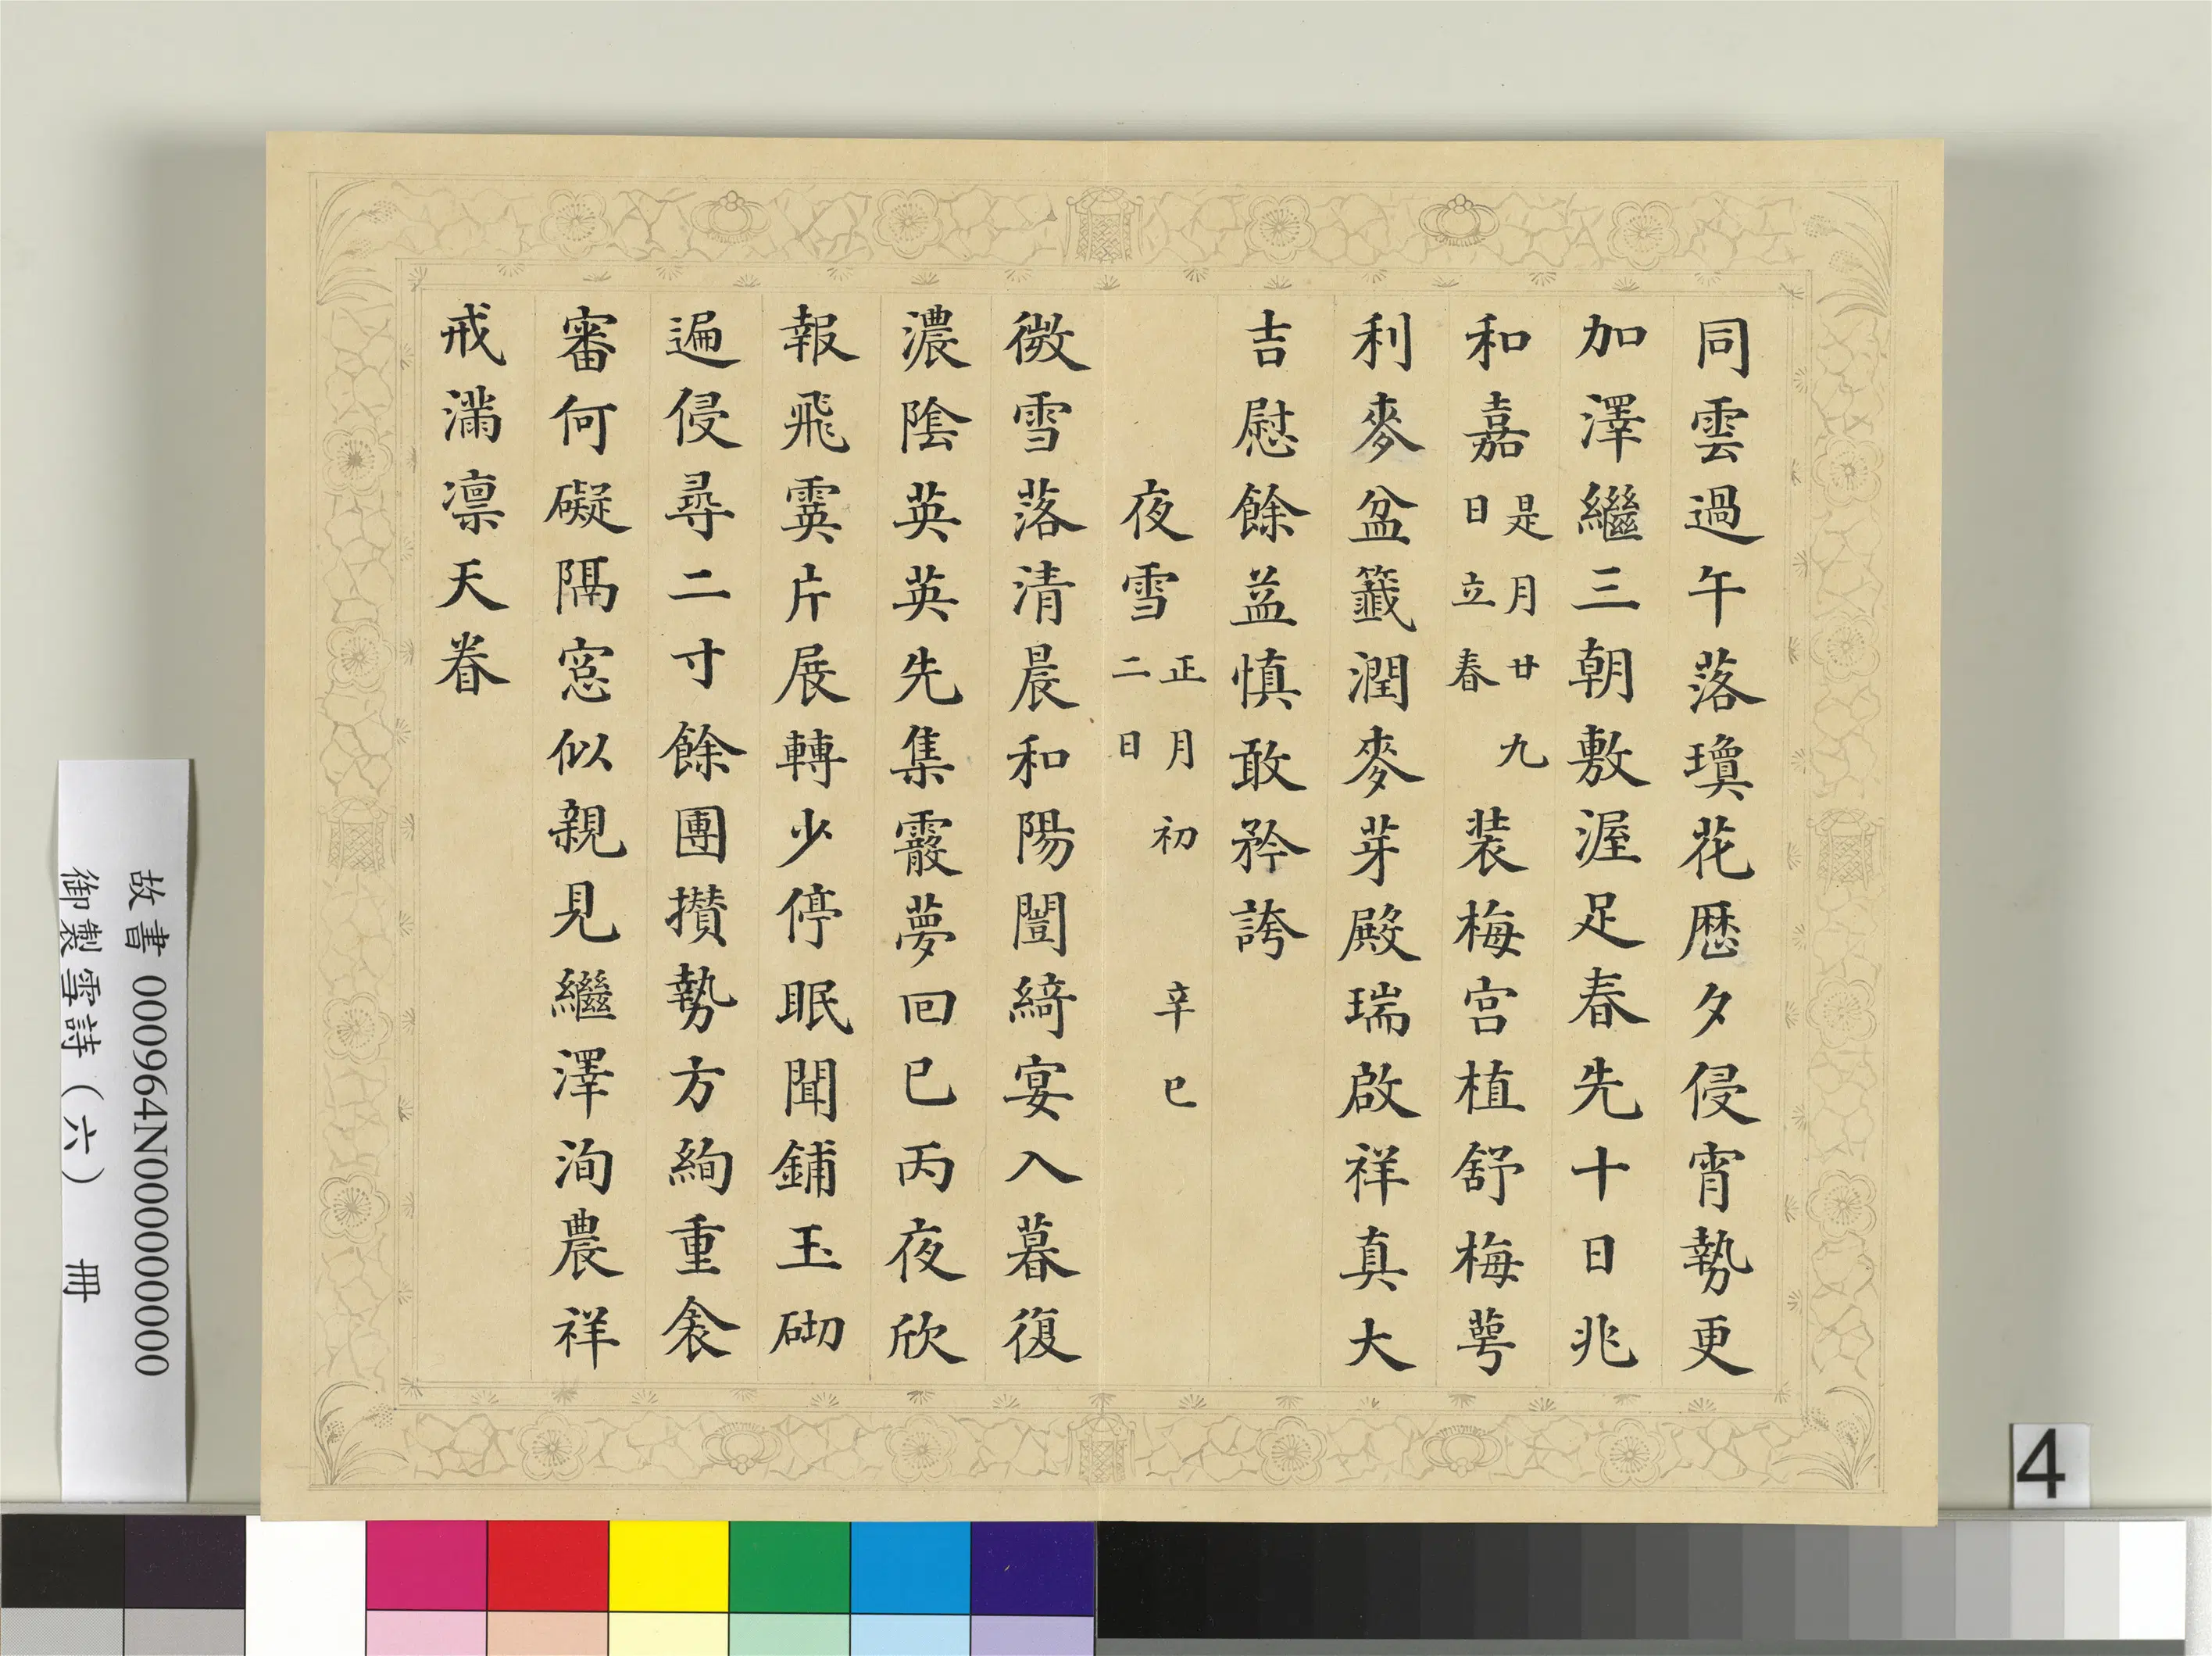 同雲過午落瓊花歷夕侵宵勢更
加澤繼三朝敷渥足春先十日兆
和嘉是月廿九日立春装梅宫植舒梅萼
利麥盆籤潤麥芽殿瑞啟祥真大
吉慰餘益慎敢矜誇
夜雪正月初二日 辛巳
微雪落清晨和陽闓綺宴入暮復
濃陰英英先集霰夢回已丙夜欣
報飛霙片展轉少停眠聞鋪玉砌
遍侵尋二寸餘團攢勢方絢重衾
審何礙隔窓似親見繼澤洵農祥
戒滿凛天眷
故書 000964N000000000
御製雪詩（六） 冊
4